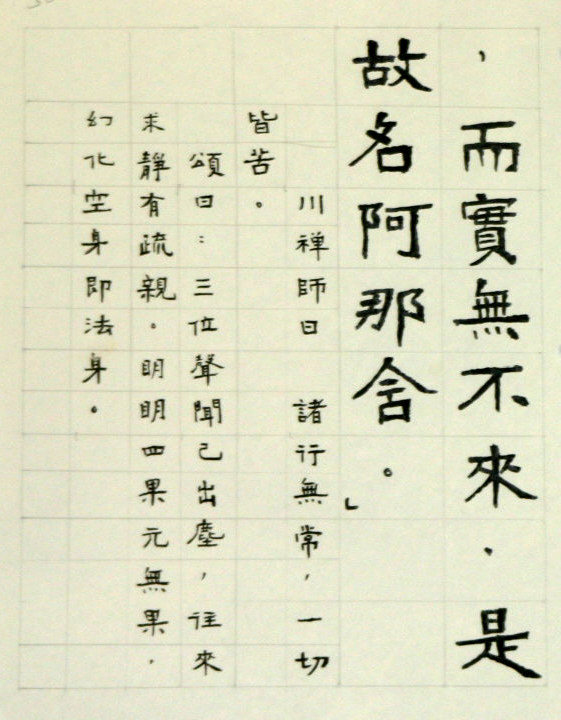 ，而實無不來．是
故名阿那含。」
川禅師曰　諸行無常，一切
皆苦。
頌曰：三位聲聞已出塵，往來
求靜有疏親。明明四果元無果．
幻化空身即法身。